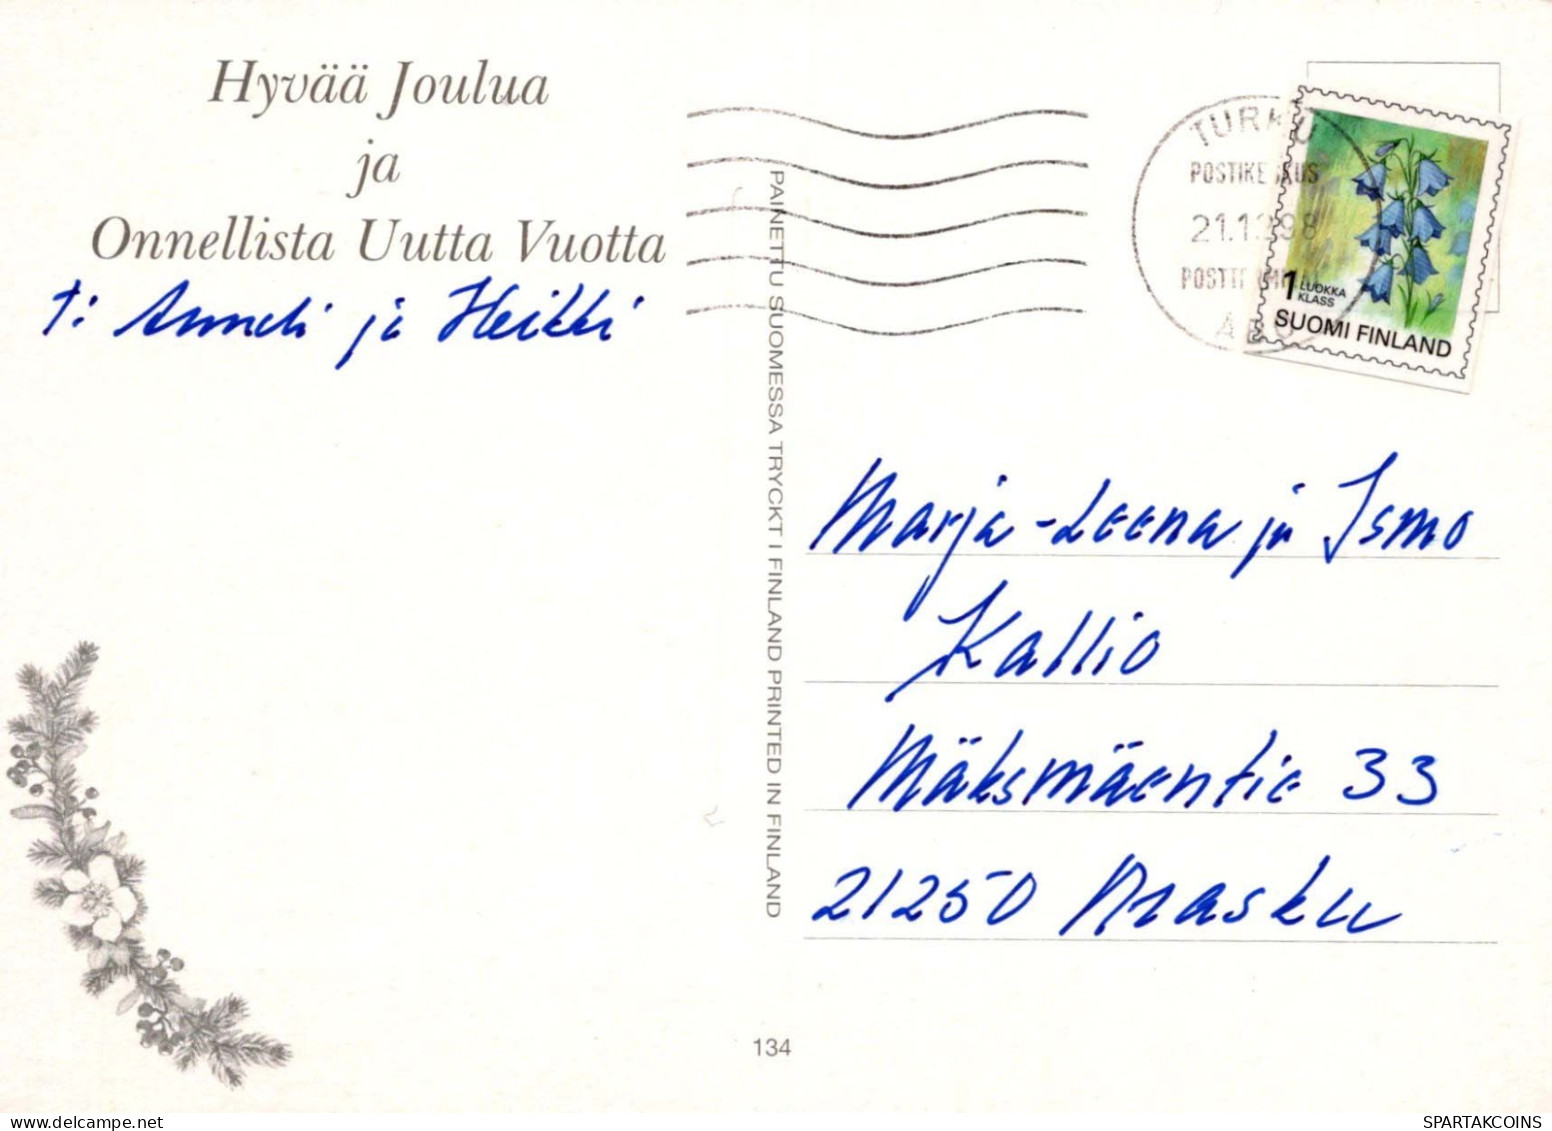 Hyvää Joulua
ja
Onnellista Uutta Vuotta
t: Anneli ja Heikki
PAINETTU SUOMESSA TRYCKT I FINLAND PRINTED IN FINLAND
TURKU
POSTIKESKUS
21.12.98
ÅBO
1 LUOKKA
KLASS
SUOMI FINLAND
Marja-Leena ja Ismo
Kallio
Mäksmäentie 33
21250 Masku
134
SPARTAKCOINS